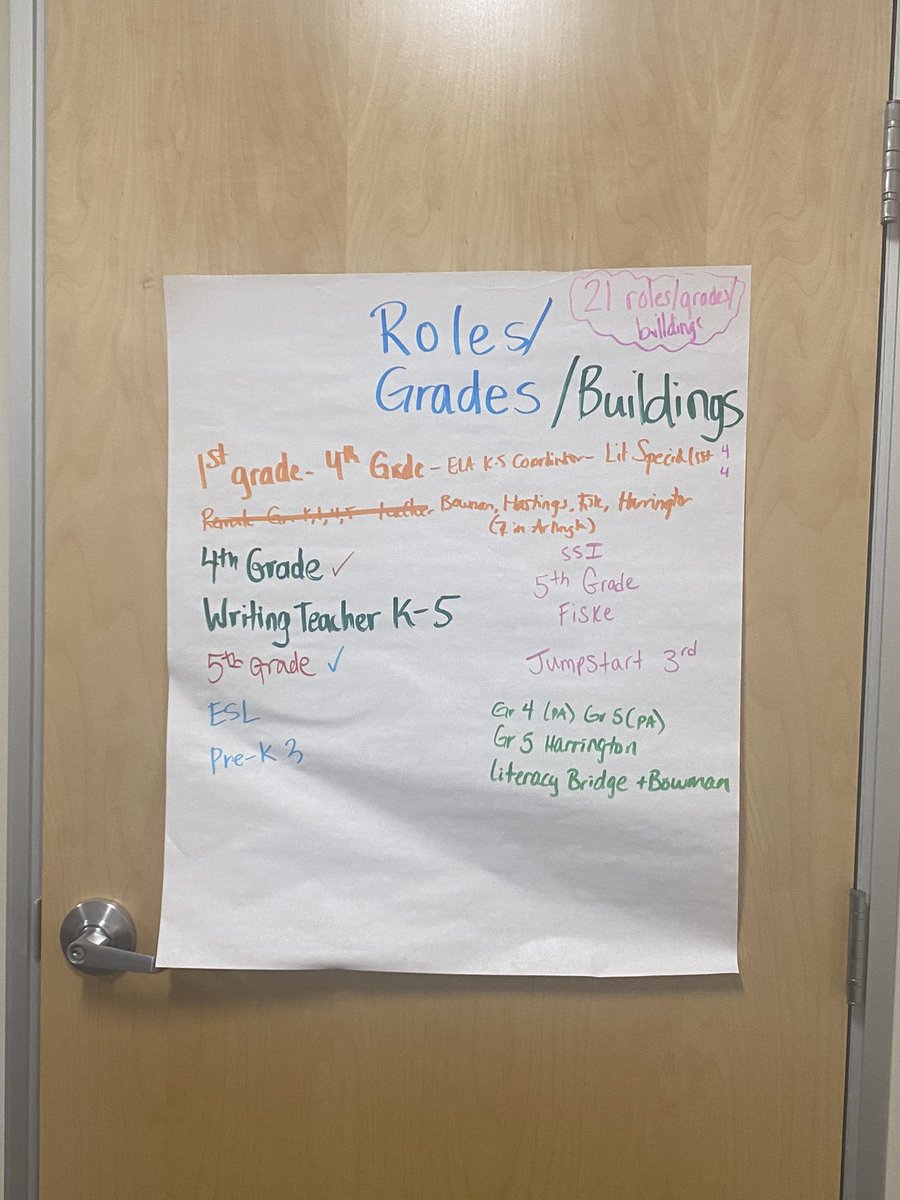 21 roles/grades/
buildings
Roles/
Grades /Buildings
1st grade - 4th Grade - ELA K-5 Coordinator - Lit Specialist 4
4
Remote Gr. K,1,4,5 teacher Bowman, Hastings, Fisk, Harrington
(7 in Arlington)
4th Grade ✓
SSI
5th Grade
Fiske
Writing Teacher K-5
5th Grade ✓
Jumpstart 3rd
ESL
Pre-K 3
Gr 4 (PA) Gr 5 (PA)
Gr 5 Harrington
Literacy Bridge + Bowman